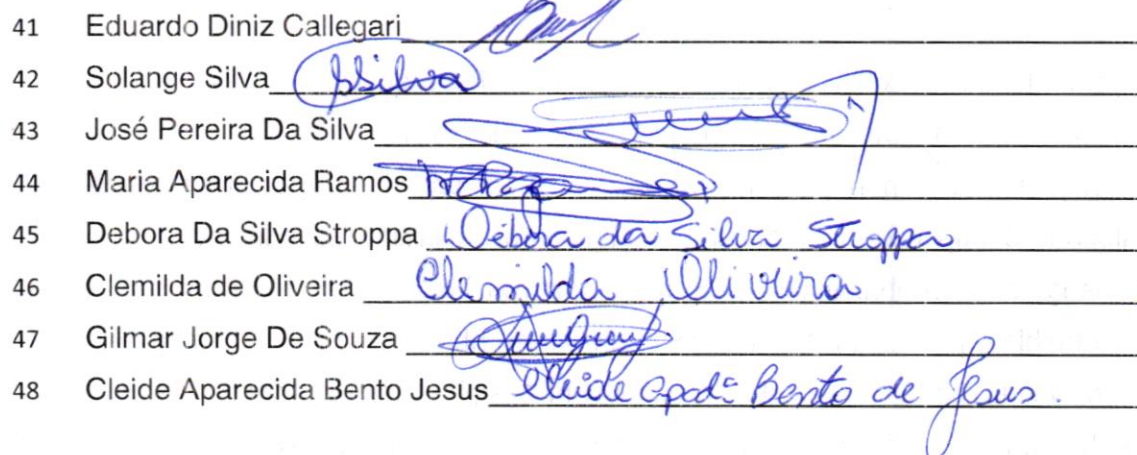 41 Eduardo Diniz Callegari
42 Solange Silva SSilva
43 José Pereira Da Silva
44 Maria Aparecida Ramos
45 Debora Da Silva Stroppa Débora da Silva Stroppa
46 Clemilda de Oliveira Clemilda Oliveira
47 Gilmar Jorge De Souza
48 Cleide Aparecida Bento Jesus Cleide Apdª Bento de Jesus.